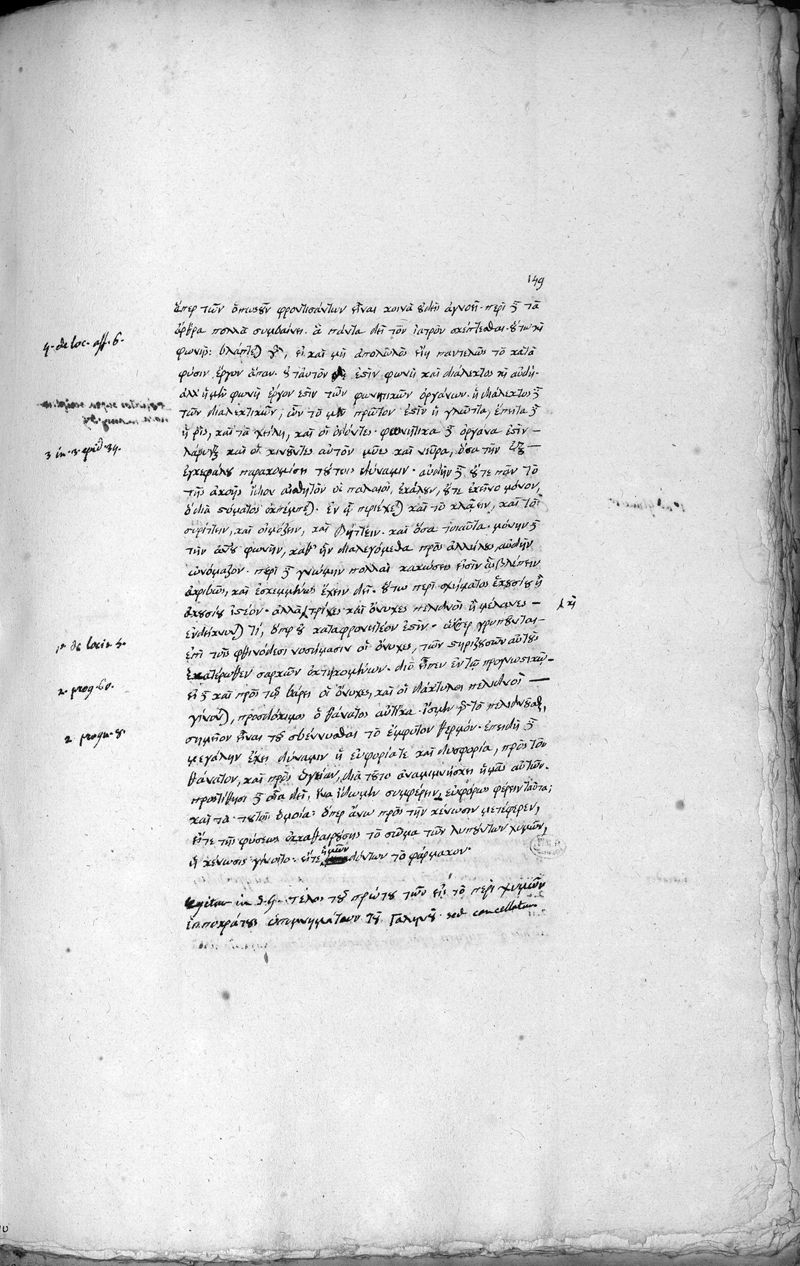 149
ὅπερ τῶν ὁπωσοῦν φροντισάντων εἶναι κοινὰ οὐδεὶς ἀγνοεῖ· περὶ δὲ τὰ
4. de loc. aff. 6.
ἄρθρα πολλὰ συμβαίνει. ἃ πάντα δεῖ τὸν ἰατρὸν σκέπτεσθαι· οὕτω καὶ
φωνή: βλάπτεται γὰρ, εἰ καὶ μὴ ἀπολωλὸς εἴη παντελῶς τὸ κατὰ
φύσιν ἔργον ἅπαν· οὐ ταυτὸν ἐστὶν φωνὴ καὶ διάλεκτος καὶ αὐδή·
ἀλλ' ἡ μὲν φωνὴ ἔργον ἐστὶν τῶν φωνητικῶν ὀργάνων· ἡ διάλεκτος δὲ
τῶν διαλεκτικῶν, ὧν τὸ μὲν πρῶτον ἐστὶν ἡ γλῶττα, ἔπειτα δὲ
3 in 3 epid 34.
ἡ ῥὶς, καὶ τὰ χείλη, καὶ οἱ ὀδόντες· φωνητικὰ δὲ ὄργανα ἐστὶν
λάρυγξ καὶ οἱ κινοῦντες αὐτὸν μύες καὶ νεῦρα, ὅσα τὴν ἐξ
ἐγκεφάλου παρακομίζει τούτοις δύναμιν· αὐδὴν δὲ οὔτε πᾶν τὸ
τῆς ἀκοῆς ἴδιον αἰσθητὸν οἱ παλαιοὶ, ἐκάλουν, οὔτε ἐκεῖνο μόνον,
ὃ διὰ στόματος ἐκπέμπεται. ἐν ᾧ περιέχεται καὶ τὸ κλάειν, καὶ τὸ
συρίττειν, καὶ οἰμώζειν, καὶ βήττειν. καὶ ὅσα τοιαῦτα· μόνην δὲ
τὴν ἀνθρώπου φωνὴν, καθ' ἣν διαλεγόμεθα πρὸς ἀλλήλους, αὐδὴν
ὠνόμαζον· περὶ δὲ γνώμην πολλαὶ κακώσεις εἰσὶν ἃς βλέπειν
ἀκριβῶς, καὶ ἐσκεμμένως ἔχειν δεῖ. οὕτω περὶ σχήματος ἑκουσίου ἢ
ἀκουσίου ἰστέον· ἀλλὰ τρίχες καὶ ὄνυχες πελιδνοὶ ἢ μέλανες
καὶ
ἐνδείκνυνταί τι, ὅπερ οὐ καταφρονητέον ἐστίν· γρυποῦνται
1° de locis 4.
ἐπὶ τοῖς φθινώδεσι νοσήμασιν οἱ ὄνυχες, τῶν στηριζουσῶν αὐτοὺς
ἑκατέρωθεν σαρκῶν ἐκτηκομένων· διὸ εἶπεν ἐν τῷ προγνωστικῷ
2. prog. 60.
εἰ δὲ καὶ πρὸς τῷ βάρει οἱ ὄνυχες, καὶ οἱ δάκτυλοι πελιδνοὶ
γίνονται, προσδόκιμος ὁ θάνατος αὐτίκα· ἴσμεν δὲ τὸ πελιδνοῦσθαι,
2. progn. 8.
σημεῖον εἶναι τοῦ σβέννυσθαι τὸ ἔμφυτον θερμόν· ἐπειδὴ δὲ
μεγάλην ἔχει δύναμιν ἡ εὐφορία τε καὶ δυσφορία, πρὸς τὸν
θάνατον, καὶ πρὸς ὑγείαν, διὰ τοῦτο ἀναμιμνήσκει ἡμᾶς αὐτῶν.
προστίθησι δὲ οἷα δεῖ, ἵνα ἴδωμεν συμφέρειν, εὐφόρως φέρειν ταῦτα;
καὶ τὰ τούτοις ὅμοια· ὅπερ ἄνω πρὸς τὴν κένωσιν μετέφερεν,
εἴτε τῆς φύσεως ἐκκαθαιρούσης τὸ σῶμα τῶν λυπούντων χυμῶν,
ἡ κένωσις γένοιτο· εἴτε ἡμῶν δόντων τὸ φάρμακον·
legitur in J.G. τέλος τοῦ πρώτου τῶν εἰς τὸ περὶ χυμῶν
ἱπποκράτους ὑπομνημάτων τοῦ Γαληνοῦ· sed cancellatum